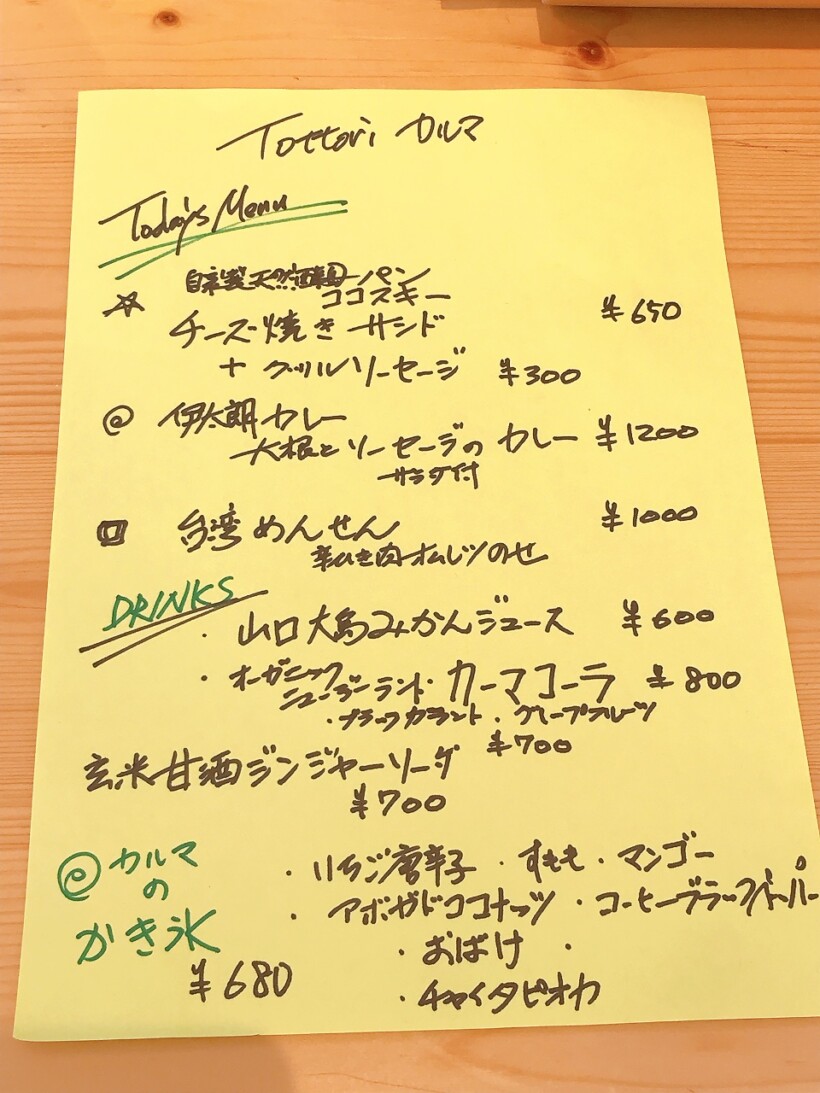 Tottori カルマ
Today's Menu
☆ 自家製天然酵母パン
ココスキー
チーズ焼きサンド ¥650
+ グリルソーセージ ¥300
@ 伊太朗カレー
大根とソーセージの カレー ¥1200
サラダ付
□ 台湾めんせん ¥1000
辛ひき肉オムレツのせ
DRINKS
・山口大島みかんジュース ¥600
・オーガニック
ニュージーランド・カーマコーラ ¥800
・ブラックカラント・グレープフルーツ
¥700
玄米甘酒ジンジャーソーダ
¥700
@ カルマ
の
かき氷
¥680
・いちご唐辛子・すもも・マンゴー
・アボガドココナッツ・コーヒーブラックペッパー
・おばけ・
・チャイタピオカ